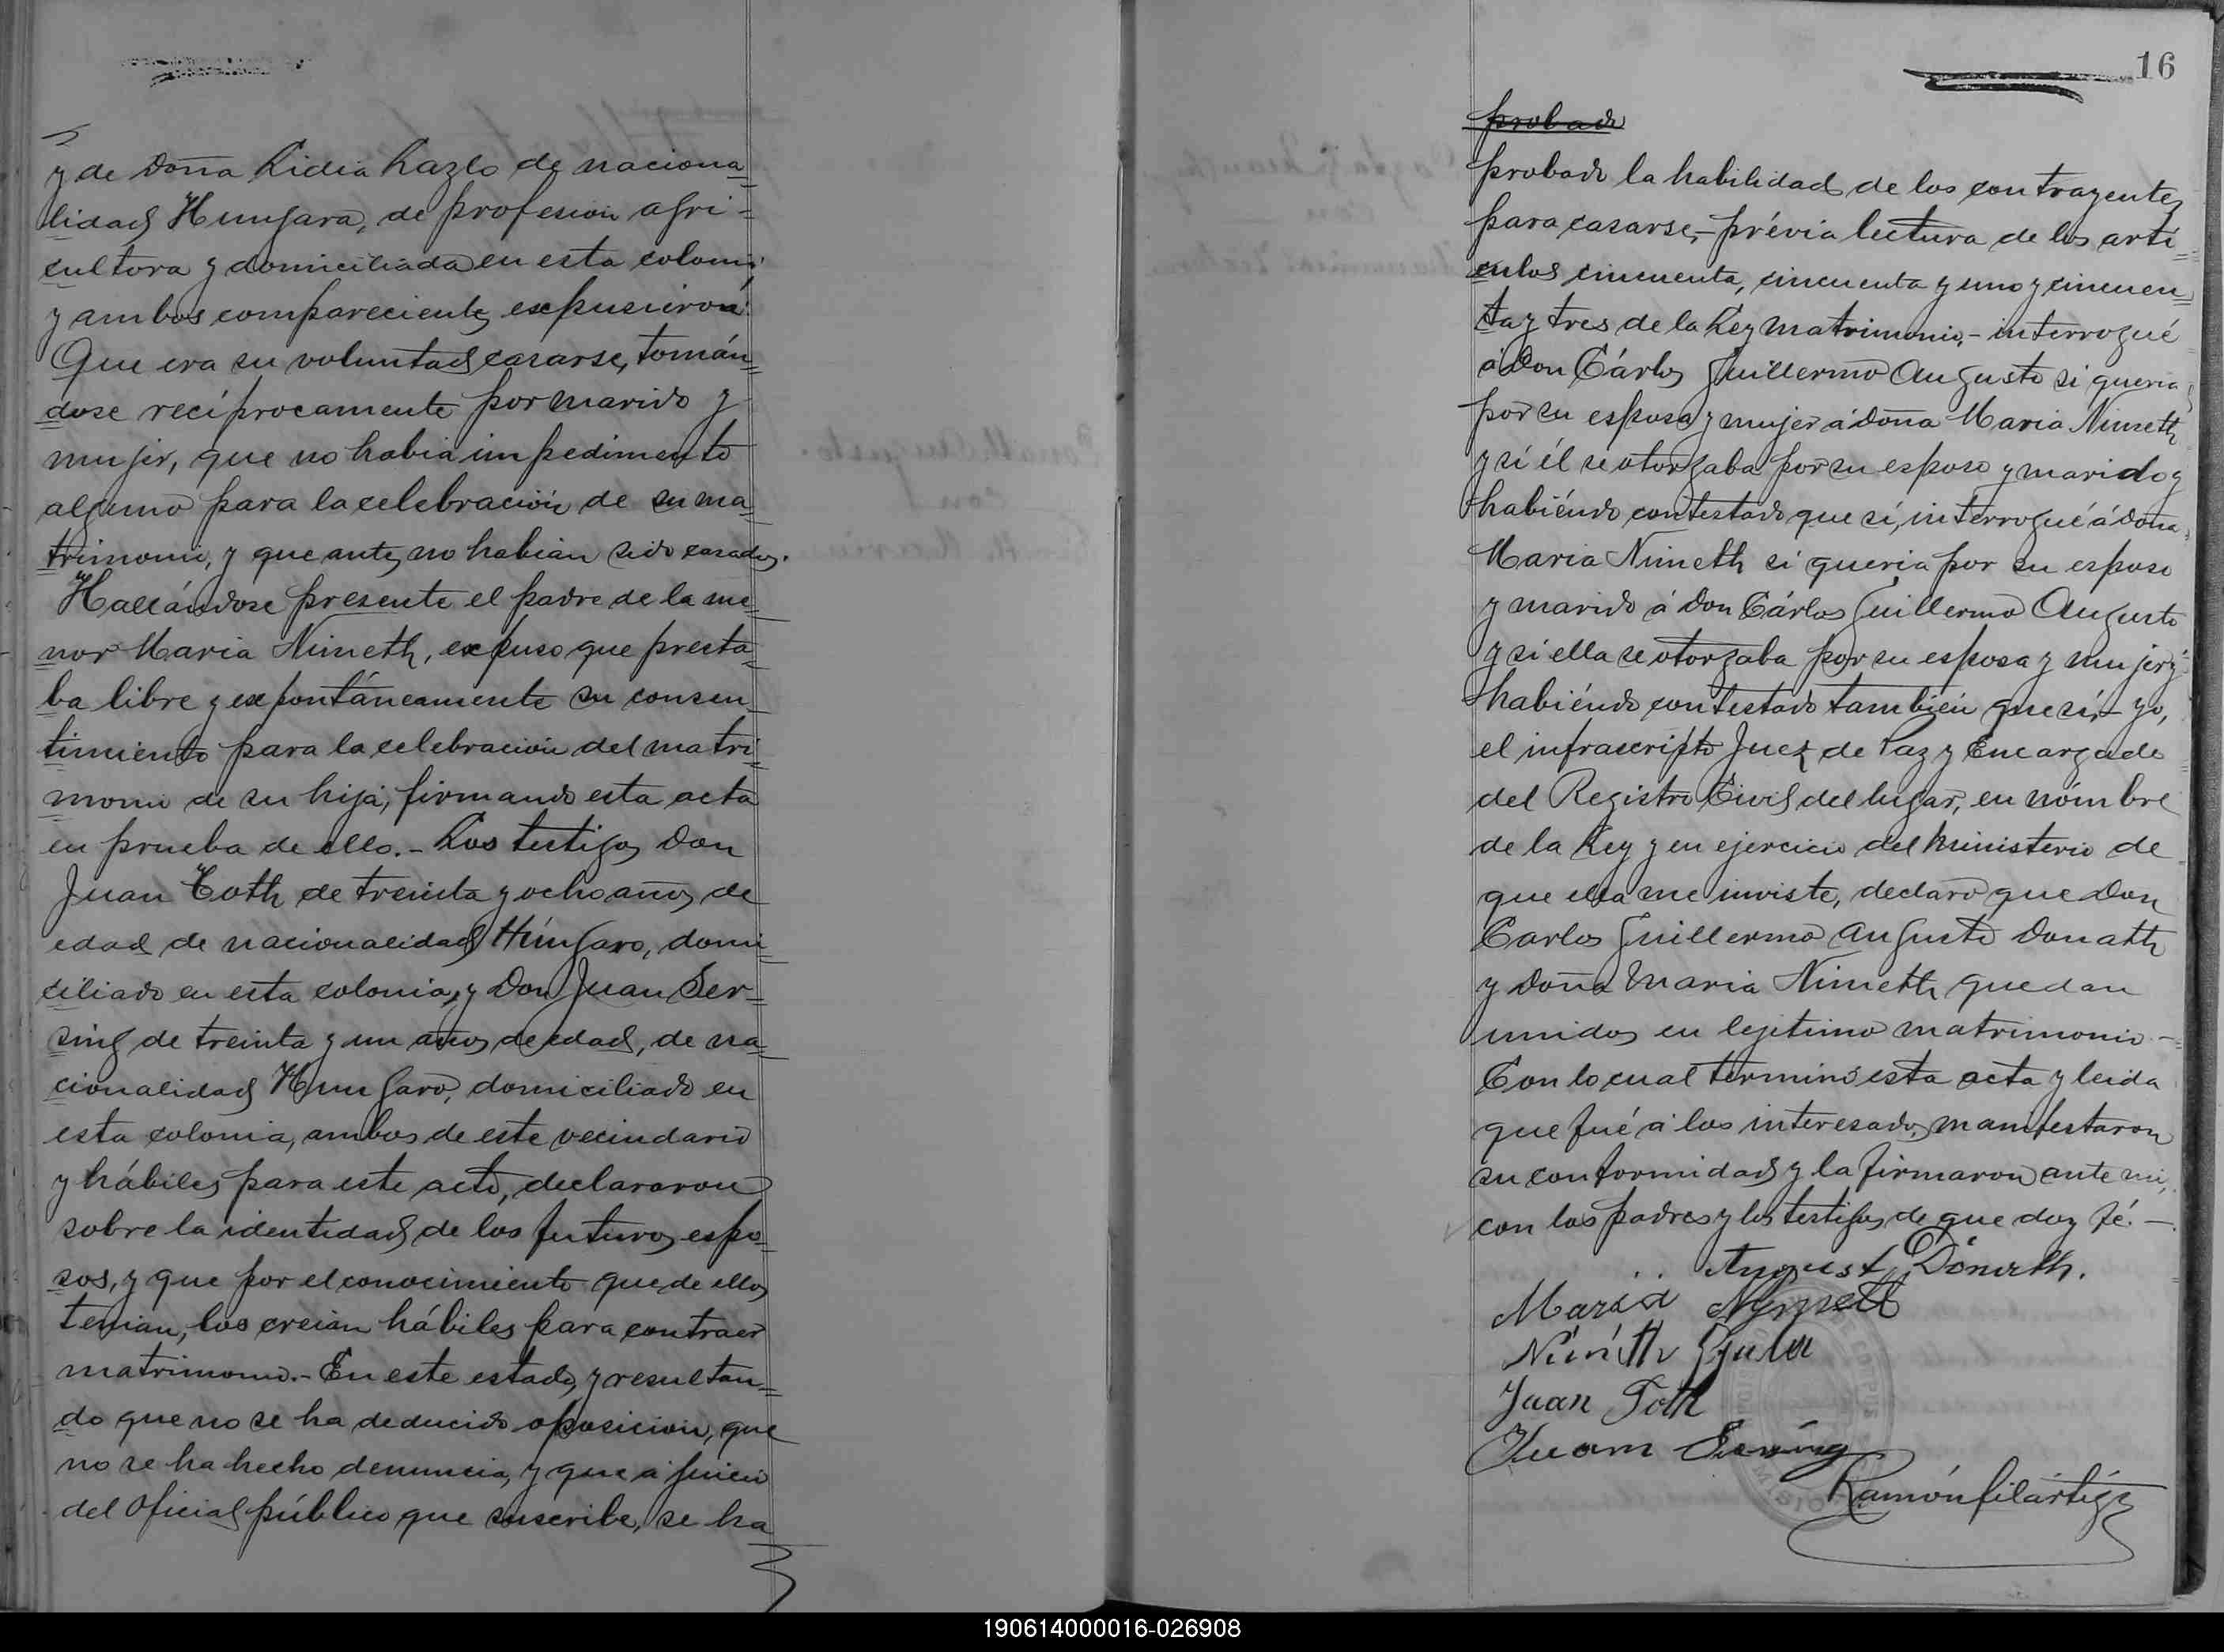 y de Doña Lidia Lazlo de naciona=
lidad Hungara, de profesion agri=
cultora y domiciliada en esta colonia
y ambos comparecientes expusieron:
Que era su voluntad casarse, tomán=
dose recíprocamente por marido y
mujer, que no habia impedimento
alguno para la celebración de su ma=
trimonio, y que antes no habian sido casados.
Hallándose presente el padre de la me=
nor Maria Nimeth, expuso que presta=
ba libre y expontáneamente su consen=
timiento para la celebración del matri=
monio de su hija, firmando esta acta
en prueba de ello.- Los testigos Don
Juan Toth de treinta y ocho años de
edad de nacionalidad Húngaro, domi=
ciliado en esta colonia, y Don Juan Ser=
sing de treinta y un años de edad, de na=
cionalidad Hungaro, domiciliado en
esta colonia, ambos de este vecindario
y hábiles para este acto, declararon
sobre la identidad de los futuros espo=
sos, y que por el conocimiento que de ellos
tenian, los creian hábiles para contraer
matrimonio.- En este estado, y resultan=
do que no se ha deducido oposicion, que
no se ha hecho denuncia, y que a juicio
del Oficial público que suscribe, se ha
16
probado
probado la habilidad de los contrayentes
para casarse,- prévia lectura de los arti=
culos cincuenta, cincuenta y uno y cincuen=
ta y tres de la Ley matrimonio,- interrogué
á Don Cárlos Guillermo Augusto si queria
por su esposa y mujer á doña Maria Nimeth
y si él se otorgaba por su esposo y marido y
habiéndo contestado que sí, interrogué á doña
Maria Nimeth si queria por su esposo
y marido á Don Cárlos Guillermo Augusto
y si ella se otorgaba por su esposa y mujer y
habiéndo contestado también que sí,- yo,
el infrascripto Juez de Paz y Encargado
del Registro Civil del lugar, en nómbre
de la Ley y en ejercicio del ministerio de
que ella me inviste, declaro que Don
Carlos Guillermo Augusto Donath
y Doña Maria Nimeth quedan
unidos en lejitimo matrimonio.-
Con lo cual terminó esta acta y leida
que fué á los interesados, manifestaron
su conformidad y la firmaron ante mi,
con los padres y los testigos de que doy fé.-
August Dónath.
Maria
Gyula
Juan Toth
Ramón Filártiga
190614000016-026908